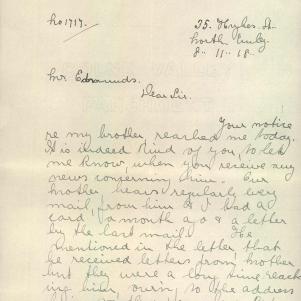 No 1717.
35. Hughes St
North Unley
8-11-18.
Mr Edmunds.
Dear Sir.
Your notice
re my brother, reached me today.
It is indeed kind of you, to let
me know, when you receive any
news concerning him. Our
mother hears regularly every
mail, from him & I had a
card a month ago & a letter
by the last mail. He
mentioned in the letter that
he received letters from mother
but they were a long time reach
ing him, owing to the address